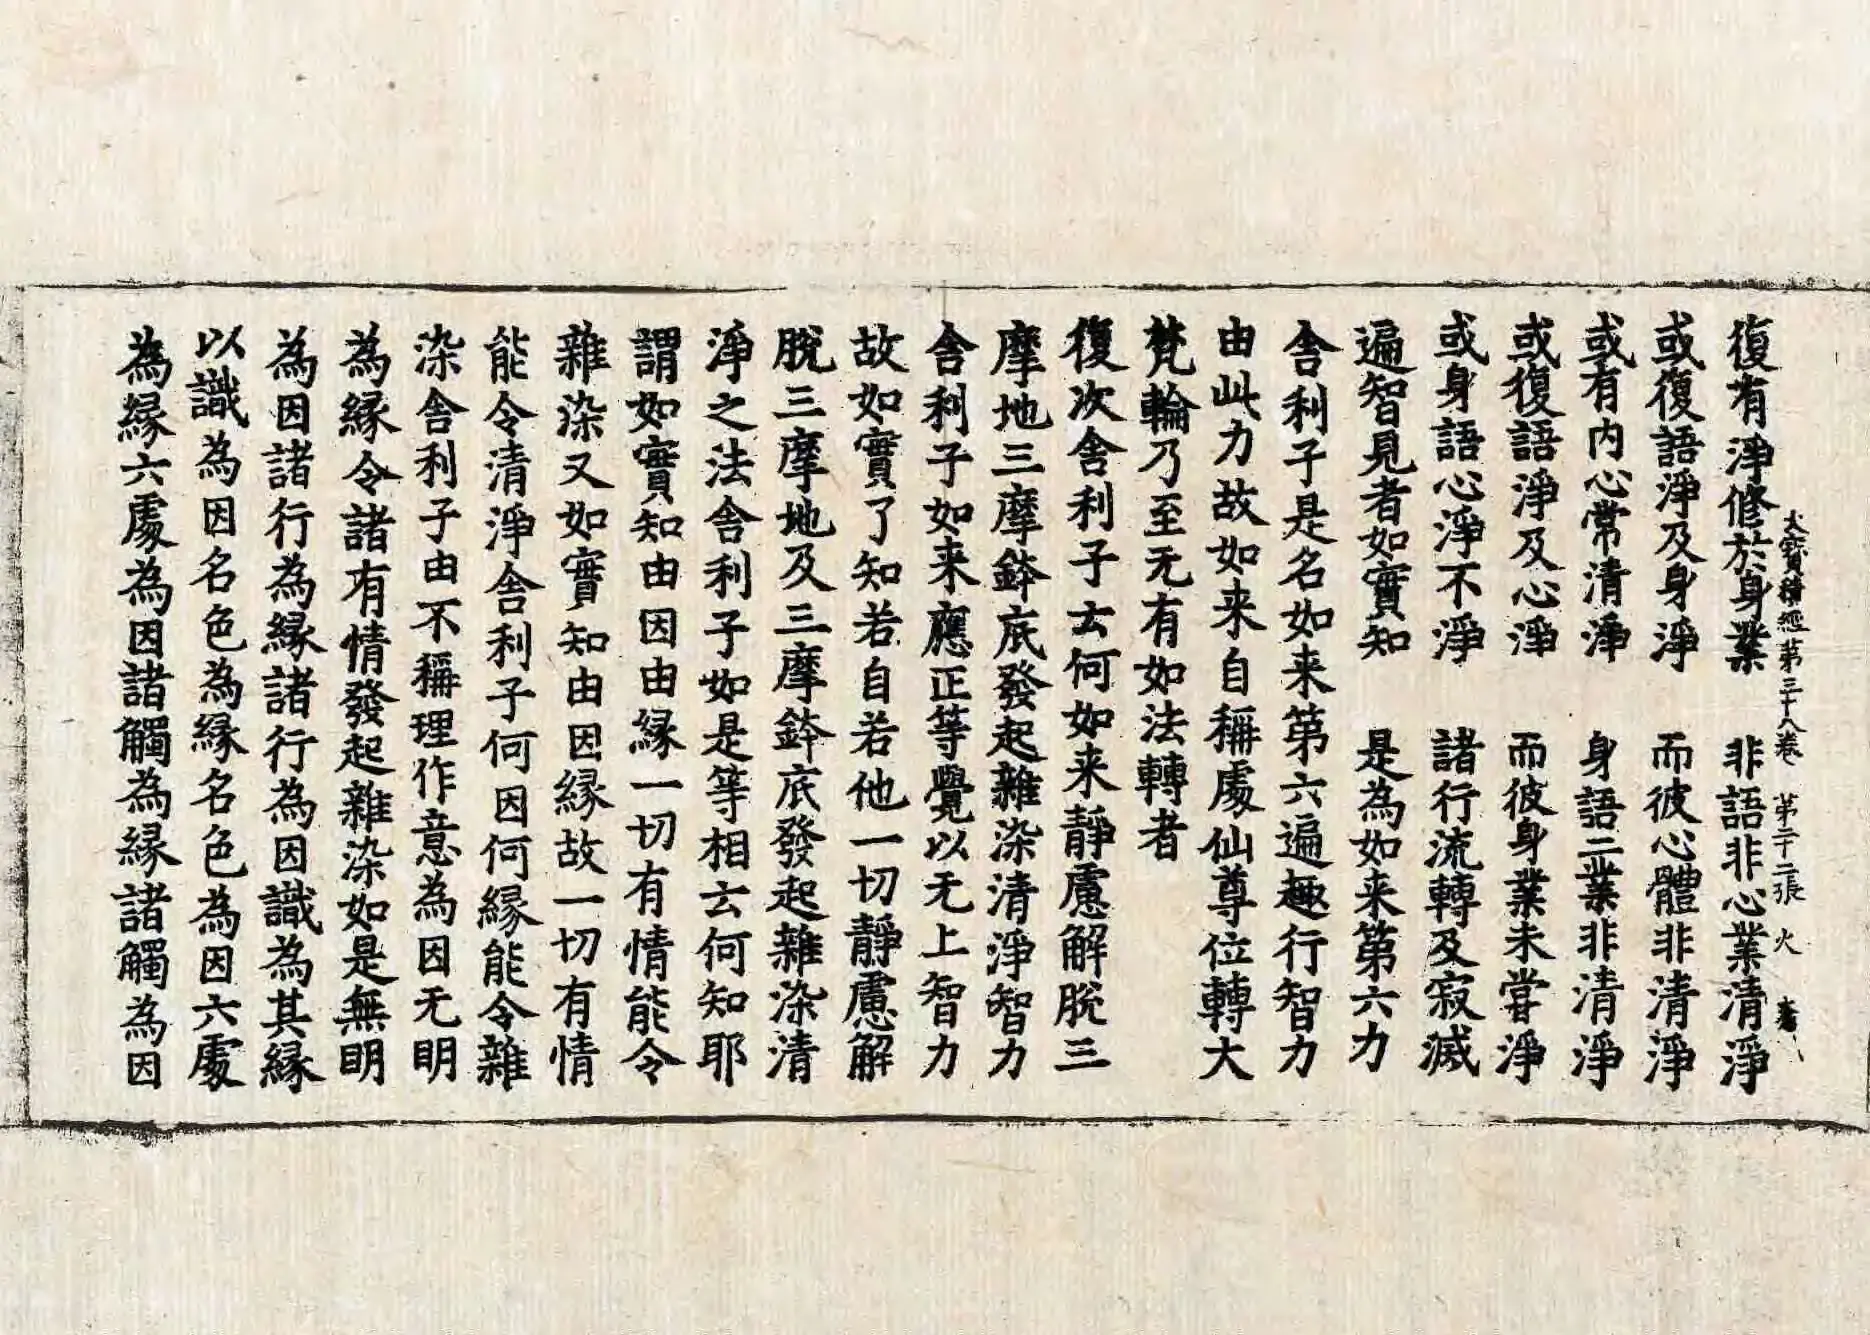 復有淨修於身業　非語非心業清淨
大寶積經第三十八卷　第二十二張　火
或復語淨及身淨　而彼心體非清淨
或有内心常清淨　身語二業非清淨
或復語淨及心淨　而彼身業未甞淨
或身語心淨不淨　諸行流轉及寂滅
遍智見者如實知　是為如来第六力
舍利子是名如来第六遍趣行智力
由此力故如来自稱處仙尊位轉大
梵輪乃至无有如法轉者
復次舍利子云何如来靜慮解脫三
摩地三摩鉢底發起雜染清淨智力
舍利子如来應正等覺以无上智力
故如實了知若自若他一切靜慮解
脫三摩地及三摩鉢底發起雜染清
淨之法舍利子如是等相云何知耶
謂如實知由因由縁一切有情能令
雜染又如實知由因縁故一切有情
能令清淨舍利子何因何縁能令雜
染舍利子由不稱理作意為因无明
為縁令諸有情發起雜染如是無明
為因諸行為縁諸行為因識為其縁
以識為因名色為縁名色為因六處
為縁六處為因諸觸為縁諸觸為因